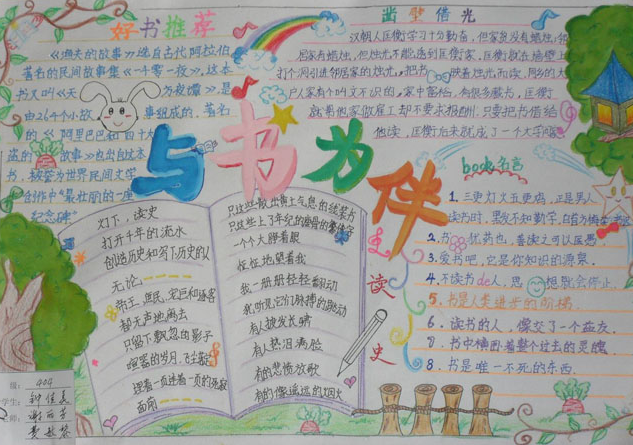 好书推荐
《渔夫的故事》选自古代阿拉伯
著名的民间故事集《一千零一夜》,这本
书又叫《天方夜谭》,是
由264个小故事组成的,著名
的《阿里巴巴和四十大
盗的故事》也出自这本
书,被誉为世界民间文学
创作中"最壮丽的一座
纪念碑"
凿壁借光
汉朝人匡衡学习十分勤奋,但家贫没有蜡烛,邻
居家有蜡烛,但烛光不能透到匡衡家,匡衡就在墙壁上
打个洞引进邻居家的烛光,把书映着烛光而读,同乡的大
户人家有个叫文不识的,家中富裕,有很多藏书,匡衡
就男他家做雇工却不要求报酬:只要把书借给
他读,匡衡后来就成了一个大学
与书为伴
book名言
1.三更灯火五更鸡,正是男人
读书时,黑发不知勤学
2.书犹药也,善读之可以医愚
3.爱书吧,它是你知识的源泉.
4.不读书de人,思想就会停止.
5.书是人类进步的阶梯.
6.读书的人,像交了一个益友.
7.书中横卧着整个过去的灵魂
8.书是唯一不死的东西.
灯下,读史
打开千年的流水
创造历史和写下历史的人
无论
帝王、庶民、宠臣和逐客
都无声地离去
只留下飘忽的影子
喧嚣的岁月、飞尘散
踩着一页连着一页的死寂
面前
只这些散出黄土气息的线装书
一个大睁着眼
怔怔地望着我
我一册册轻轻翻动
我听见它们脉搏的跳动
有人披发长啸
有人热泪满脸
有的悲愤放歌
有的像遥远的烟火
读史
404